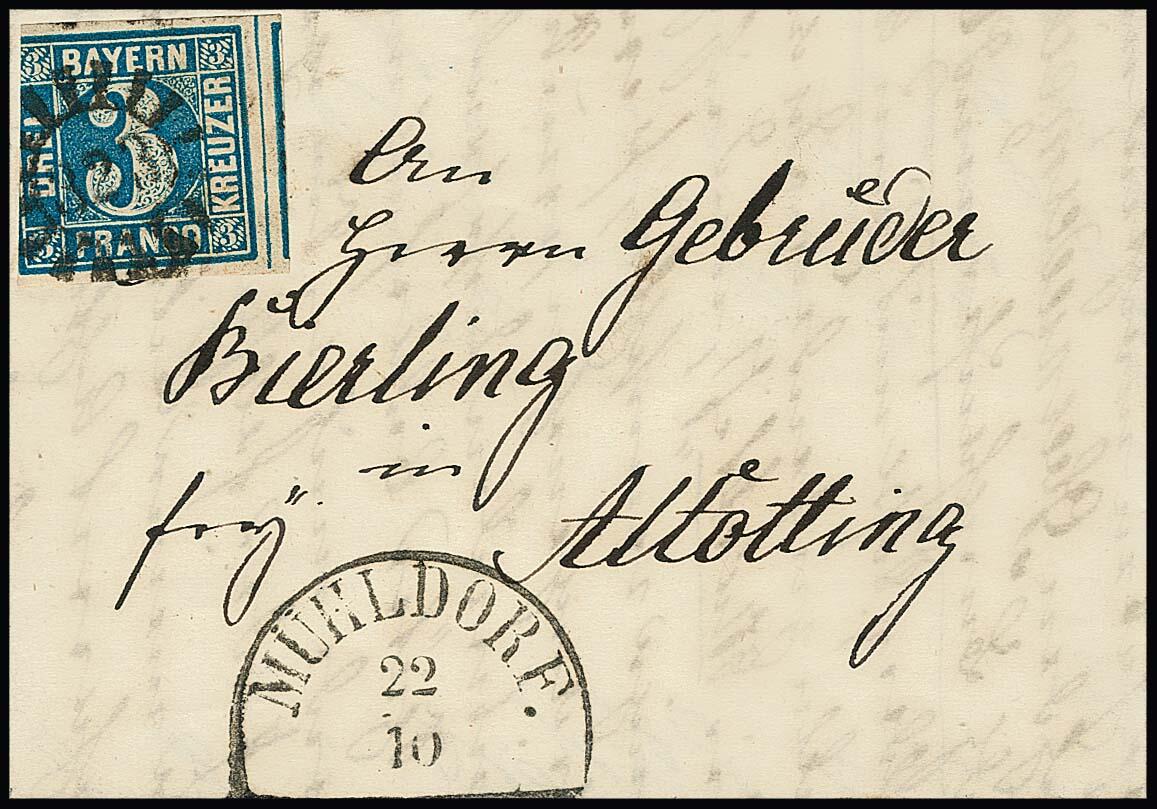 BAYERN
DREI
3
KREUZER
FRANCO
An
Herrn Gebrüder
Bierling
in
frey
Altötting
MÜHLDORF.
22
10